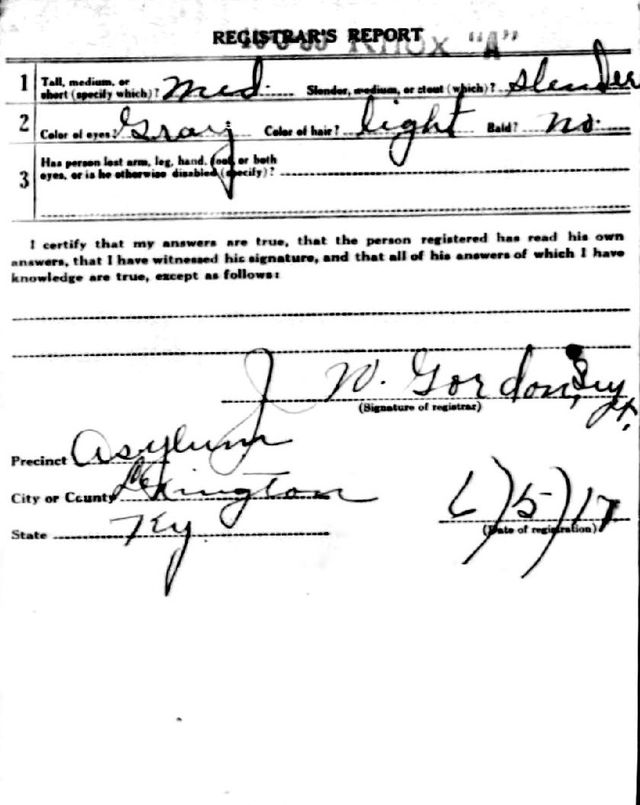 REGISTRAR'S REPORT
KNOX "A"
1 Tall, medium, or short (specify which)? med. Slender, medium, or stout (which)? slender
2 Color of eyes? Gray Color of hair? light Bald? no.
3 Has person lost arm, leg, hand, foot, or both
eyes, or is he otherwise disabled (specify)?
I certify that my answers are true, that the person registered has read his own
answers, that I have witnessed his signature, and that all of his answers of which I have
knowledge are true, except as follows:
J W. Gordon,
(Signature of registrar)
Precinct Asylum
City or County Lexington
State Ky
6/5/17
(Date of registration)